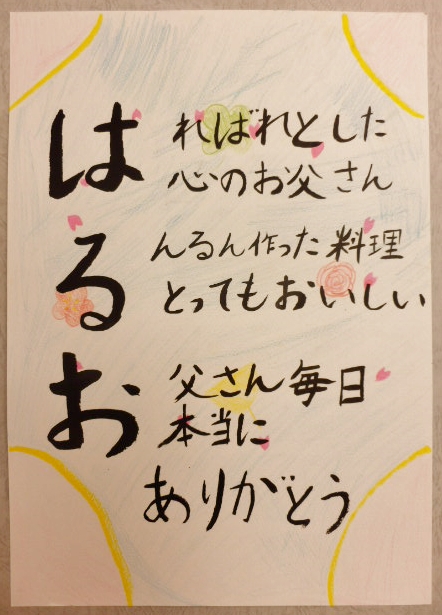 はればれとした
心のお父さん
るんるん作った料理
とってもおいしい
お父さん毎日
本当に
ありがとう